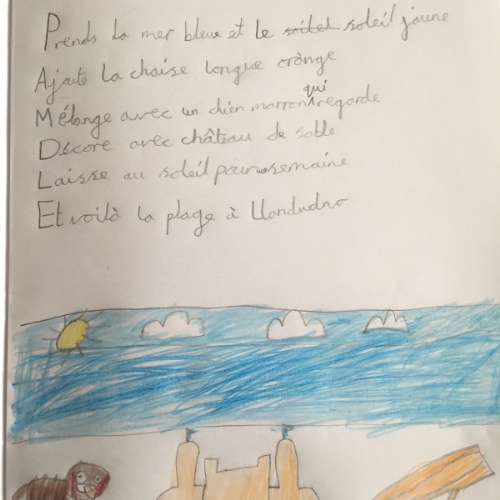 Prends la mer bleue et le soleil jaune
Ajoute la chaise longue orònge
Mélange avec un chien marron qui regarde
Décore avec château de sable
Laisse au soleil pour une semaine
Et voilà la plage à Llandudno